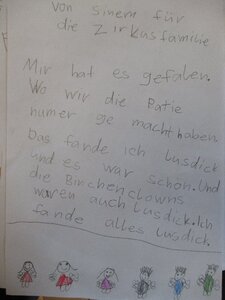 von sinem für
die Zirkusfamilie
Mir hat es gefalen.
Wo wir die Patie
numer ge macht haben.
Das fande ich lusdick
und es war schön. Und
die Birnchenclowns
waren auch lusdick. Ich
fande alles lusdick.